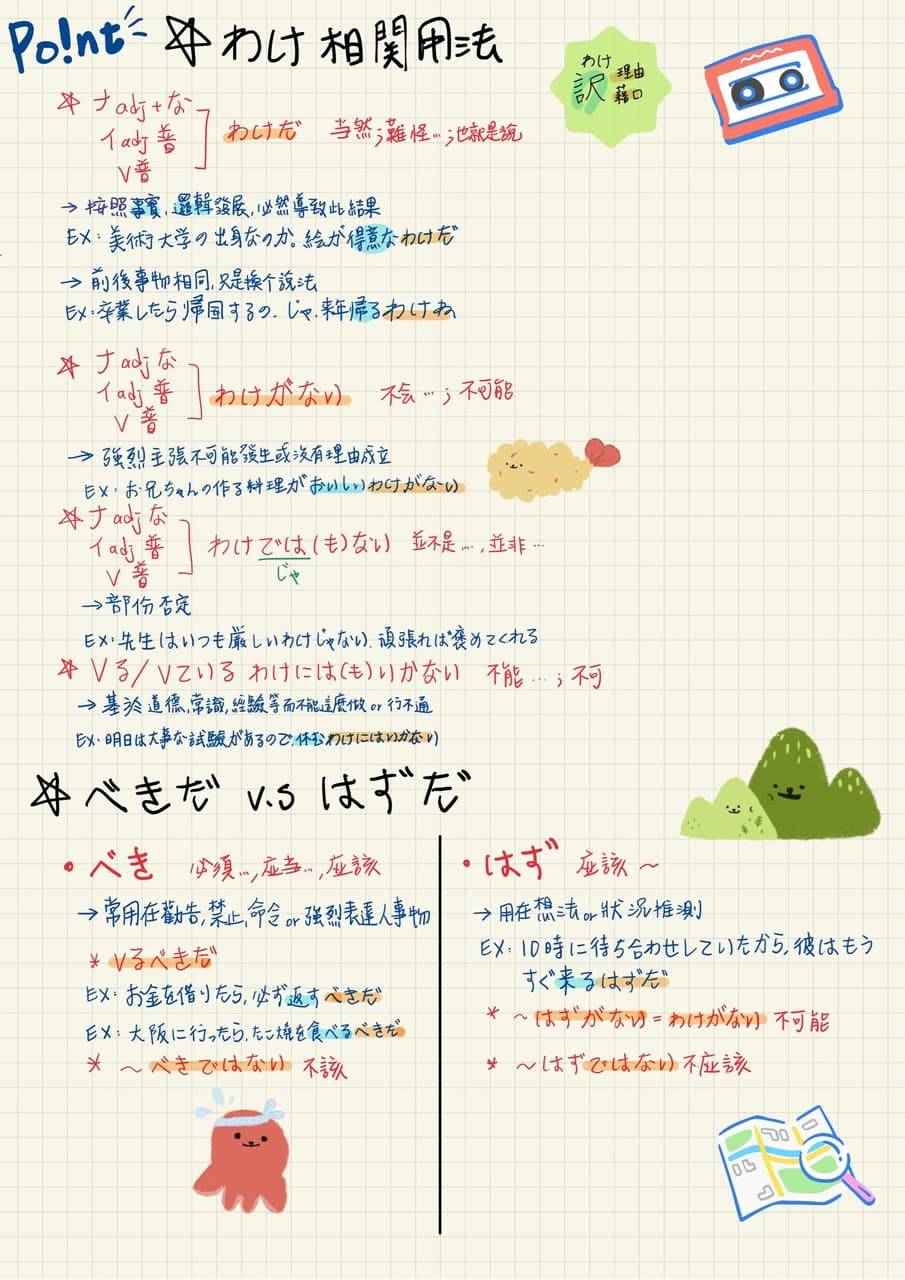 Po!nt ☆ わけ 相関用法
わけ
訳 理由
藉口
☆ ナadj+な
イadj 普
V普
わけだ 当然;難怪…;也就是說
→ 按照事實,邏輯發展,必然導致此結果
EX: 美術大学の出身なのか。絵が得意なわけだ
→ 前後事物相同,只是換个說法
EX:卒業したら帰国するの、じゃ、来年帰るわけね
☆ ナadjな
イadj 普
V 普
わけがない 不会…;不可能
→ 強烈主張不可能發生或沒有理由成立
EX: お兄ちゃんの作る料理がおいしいわけがない
☆ナadjな
イadj 普
V 普
わけでは(も)ない 並不是…,並非…
じゃ
→部份否定
EX:先生はいつも厳しいわけじゃない、頑張れば褒めてくれる
☆ Vる/Vている わけには(も)いかない 不能…;不可
→ 基於道德,常識,經驗等而不能這麼做 or 行不通
EX:明日は大事な試験があるので、休むわけにはいかない
☆ べきだ v.s はずだ
・べき 必須…,应当…,应該
→常用在勸告,禁止,命令 or 強烈表達人事物
* Vるべきだ
EX: お金を借りたら、必ず返すべきだ
EX: 大阪に行ったら、たこ焼を食べるべきだ
* ~べきではない 不該
・はず 应該~
→ 用在想法or狀況推測
EX: 10時に待ち合わせしていたから、彼はもう
すぐ来るはずだ
* ~はずがない=わけがない 不可能
* ~はずではない 不应該